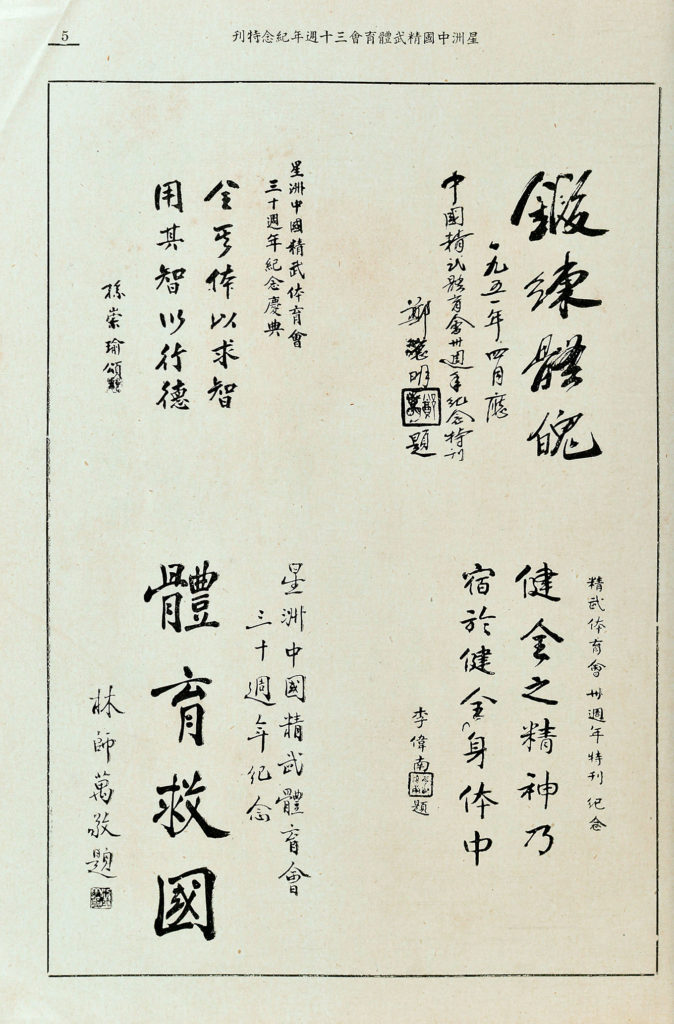 5
星洲中國精武體育會三十週年紀念特刊
鍛練體魄
一九五一年四月應
中國精武體育會卅週年紀念特刊
鄭明題
星洲中國精武体育會
三十週年紀念慶典
全亓体以求智
用其智以行德
孫崇瑜頌
精武体育會卅週年特刊紀念
健全之精神乃
宿於健全身体中
李偉南題
星洲中國精武體育會
三十週年紀念
體育救國
林師萬敬題